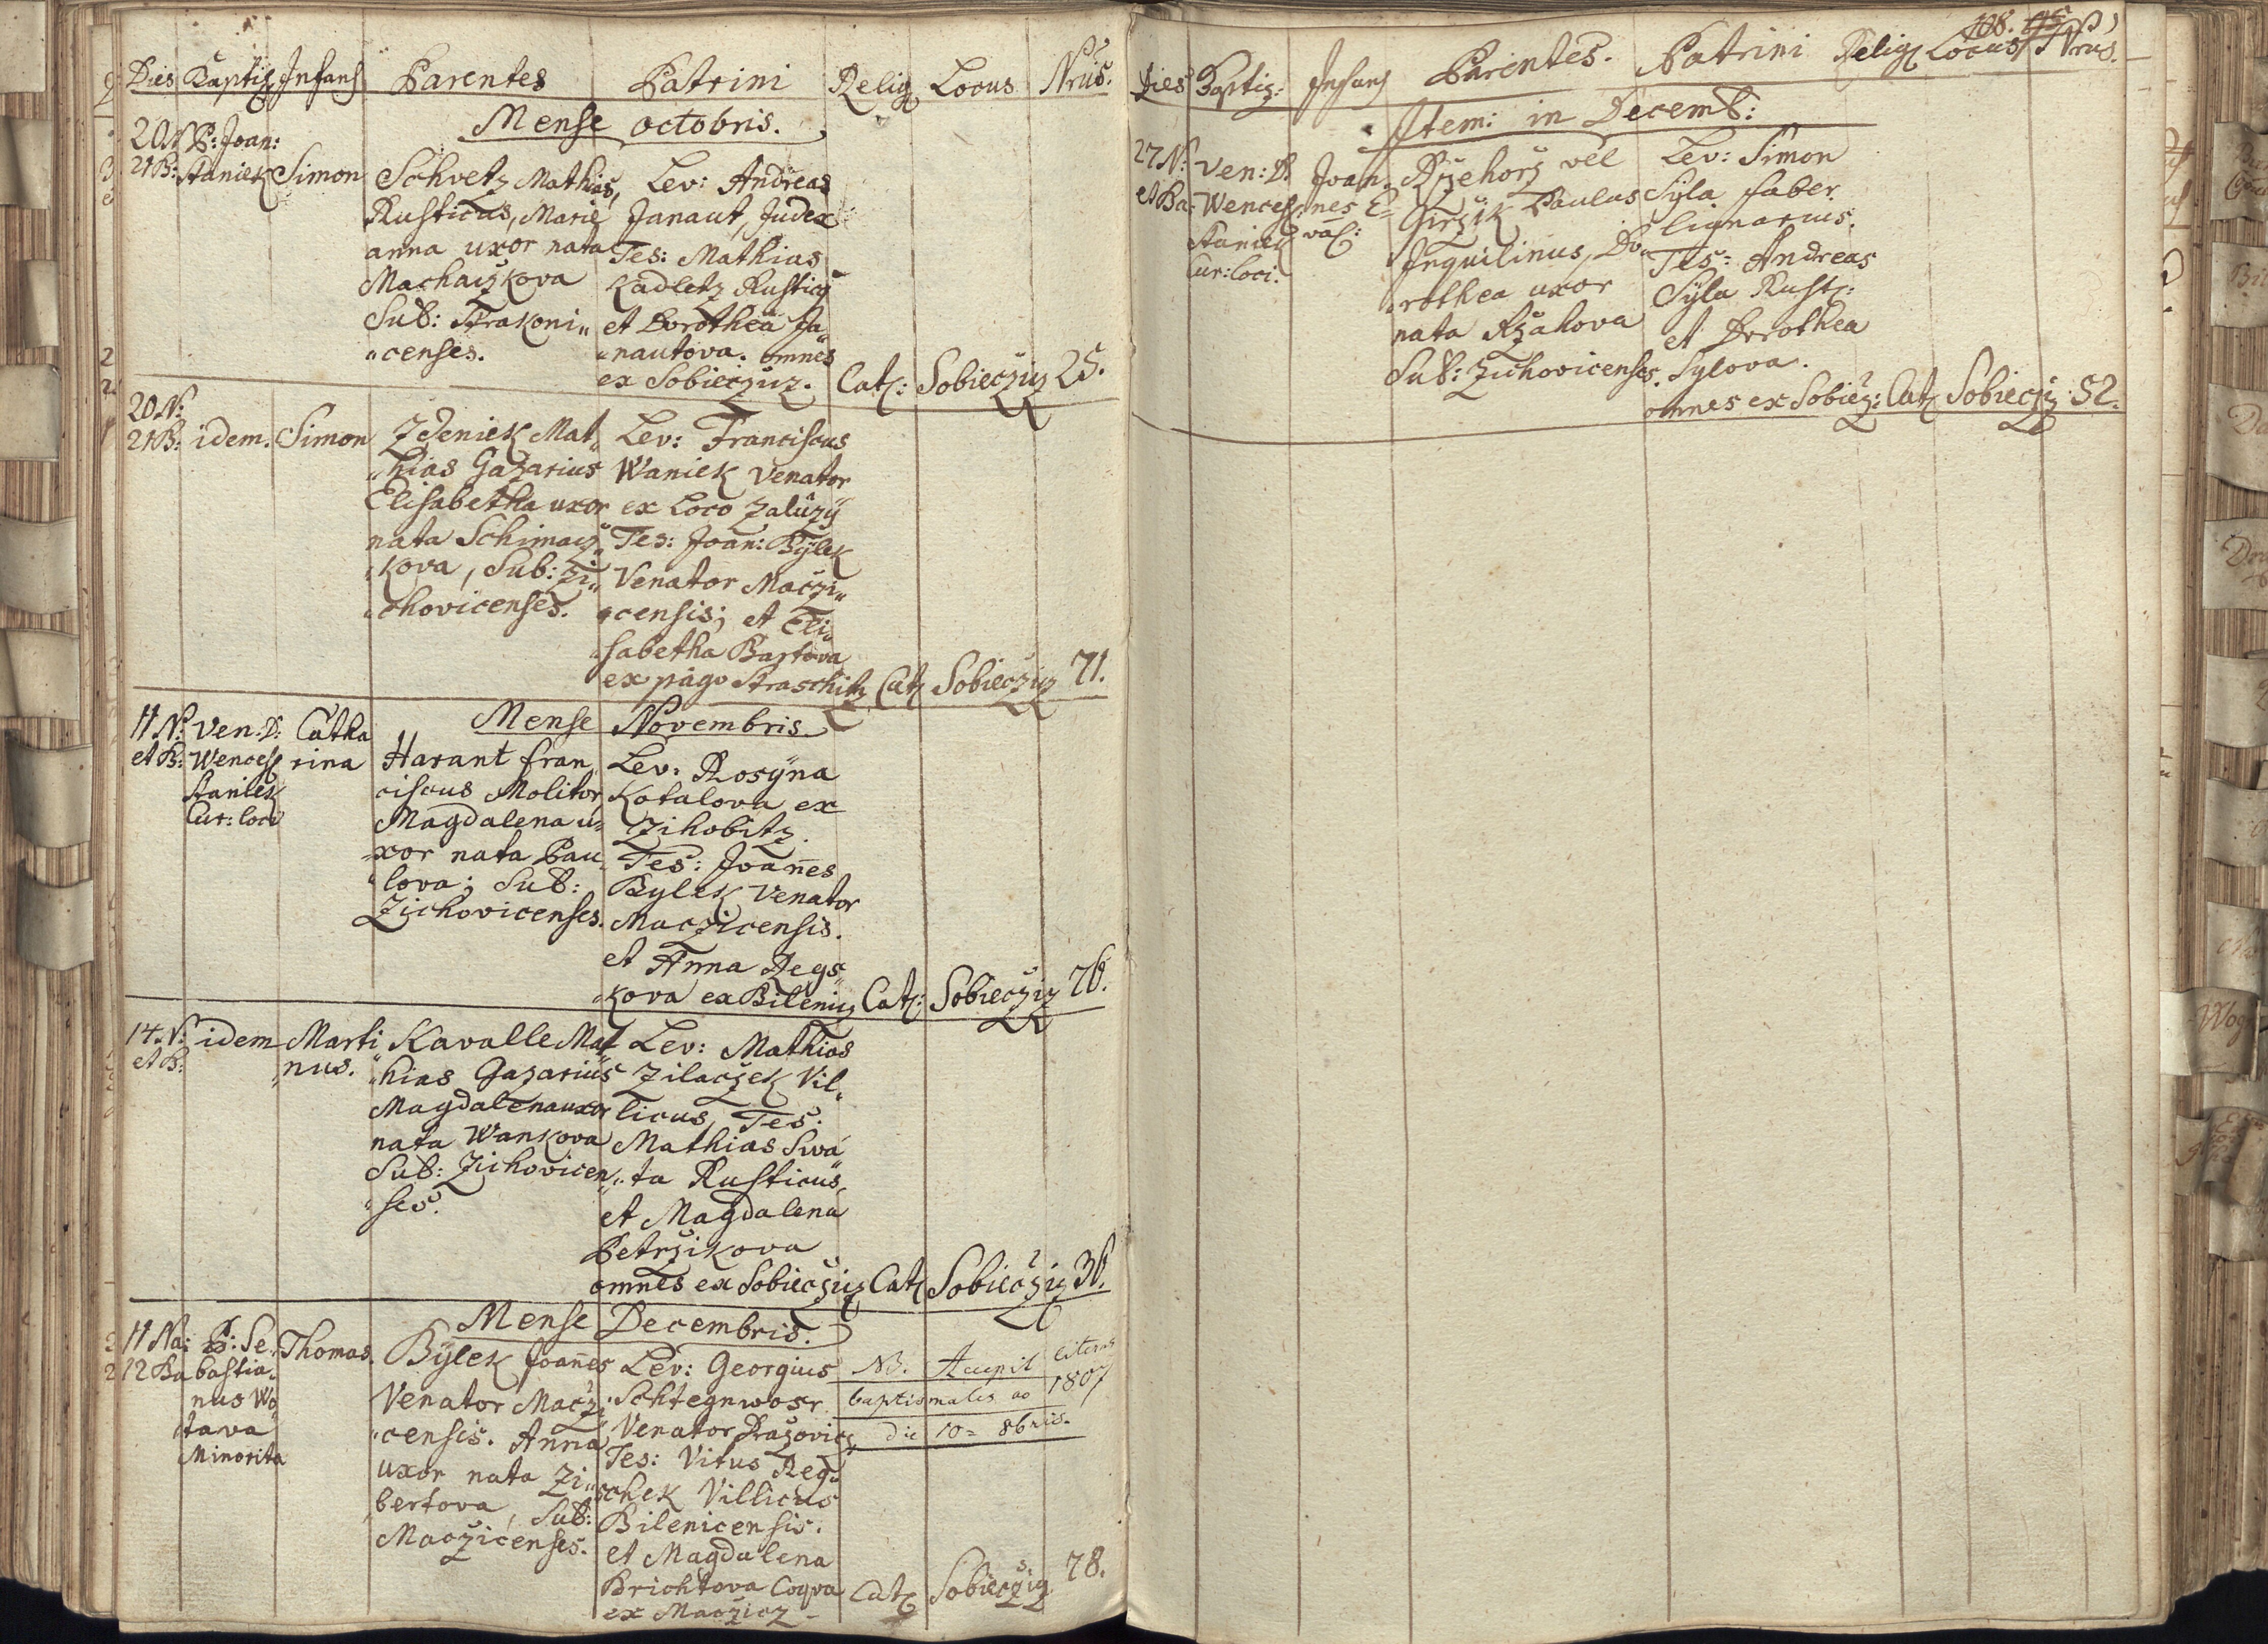 Dies Baptiz Infans Parentes Patrini Relig Locus Nrus.
Mense octobris.
20 N P: Joan:
21 B: Staniek Simon
Schvetz Mathias,
Rusticus, Marie
anna uxor nata
Machaczkova
Sub: Strakoni„
„censes.
Lev: Andreas
Janaut, Judex
Tes: Mathias
Kadletz Rustic9
et Dorothea Ja
„nautova. omnes
ex Sobieczicz. Cat: Sobieczicz 25.
20 N:
21 B: idem. Simon
Zdeniek Mat„
„hias Gazarius
Elisabetha uxor
nata Schimacz„
„kova, Sub: Zi„
„chovicenses.
Lev: Franciscus
Waniek Venator
ex Loco Zaluzÿ
Tes: Joan: Bÿlek
Venator Maczi„
„censis; et Eli„
„sabetha Bartova
ex pago Straschitz Cat Sobieczicz 71.
Mense Novembris.
11 N: Ven: D: Catha
et B: Wencesl rina
Staniek
Cur: loci
Harant fran„
ciscus Molitor
Magdalena u„
„xor nata Pau„
„lova; Sub:
Zichovicenses.
Lev: Rosÿna
Kotalova ex
Zihobitz.
Tes: Joañes
Bylek Venator
Maczicensis.
et Anna Regs„
„kova ex Bilenicz Cat: Sobieczicz 76.
14. N: idem Marti
et B: „nus.
Kavalle Mat
„hias Gazarius
Magdalena uxor
nata Wankova
Sub: Zichovicen„
„ses.
Lev: Mathias
Zilaczek Vil„
licus, Tes:
Mathias Swa
„ta Rusticus,
et Magdalena
Petrzikova
omnes ex Sobieczicz Cat Sobieczicz 36.
Mense Decembris.
11 Na: P: Se„ Thomas.
12 Ba bastia„
nus Wo
tava
Minorita
Bÿlek Joañes
Venator Maczi
„censis. Anna
uxor nata Zi„
bertova, Sub:
Maczicenses.
Lev: Georgius
Schtegnwosr
Venator Drazovicz
Tes: Vitus Reg„
schek Villicus
Bilenicensis.
et Magdalena
Brichtova Coqva
ex Maczicz –
NB. Accepit literas
baptismales ao 1807
die 10= 8bris.
Cat Sobieczicz 78.
108.
Dies Baptiz: Infans Parentes. Patrini Relig Locus Nrus.
Item: in Decemb:
27 N: Ven: D. Joan„
et Ba: Wencesl: nes E„
Staniek vası:
Cur: loci.
Rzehorz vel
Girzik Paulus
Inquilinus, Do„
„rothea uxor
nata Rzahova
Sub: Zichovicenses.
Lev: Simon
Sÿla faber
lignarius.
Tes: Andreas
Sÿla Rust:
et Dorothea
Sylova.
omnes ex Sobiecz: Cat Sobieczicz 52.